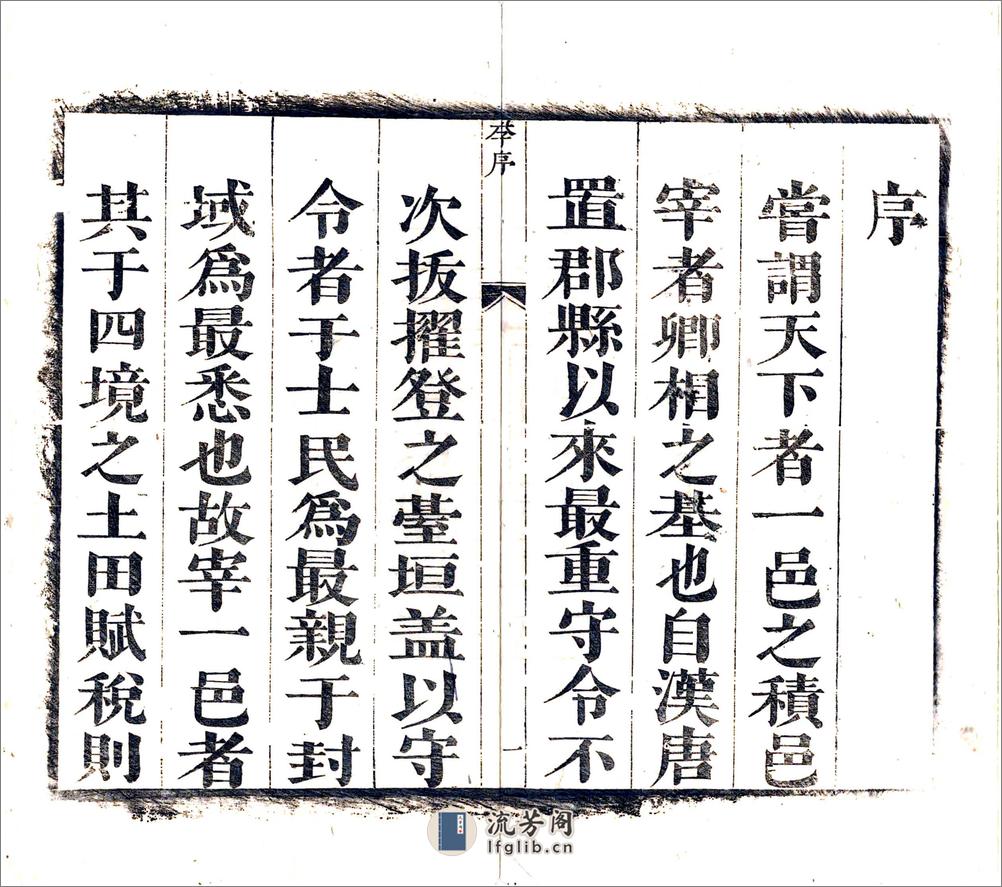 序
嘗謂天下者一邑之積邑
宰者卿相之基也自漢唐
置郡縣以來最重守令不
李序
一
次拔擢登之臺垣盖以守
令者于士民爲最親于封
域爲最悉也故宰一邑者
其于四境之土田賦稅則
流芳阁
lfglib.cn